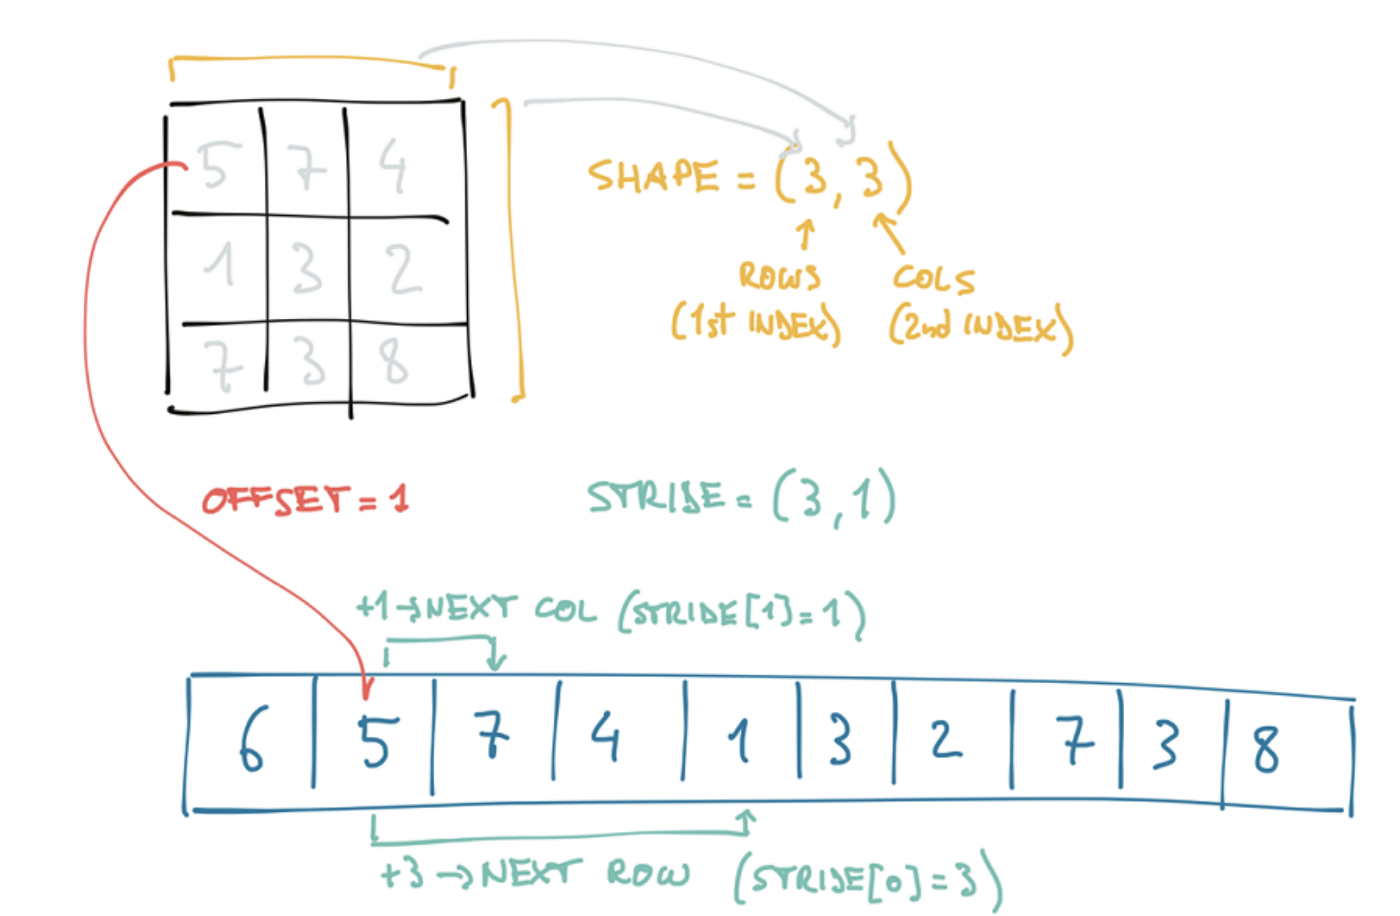 5 7 4
SHAPE = (3, 3)
1 3 2
ROWS
(1st INDEX)
COLS
(2nd INDEX)
7 3 8
OFFSET = 1
STRIDE = (3, 1)
+1 → NEXT COL (STRIDE[1] = 1)
6 5 7 4 1 3 2 7 3 8
+3 → NEXT ROW (STRIDE[0] = 3)